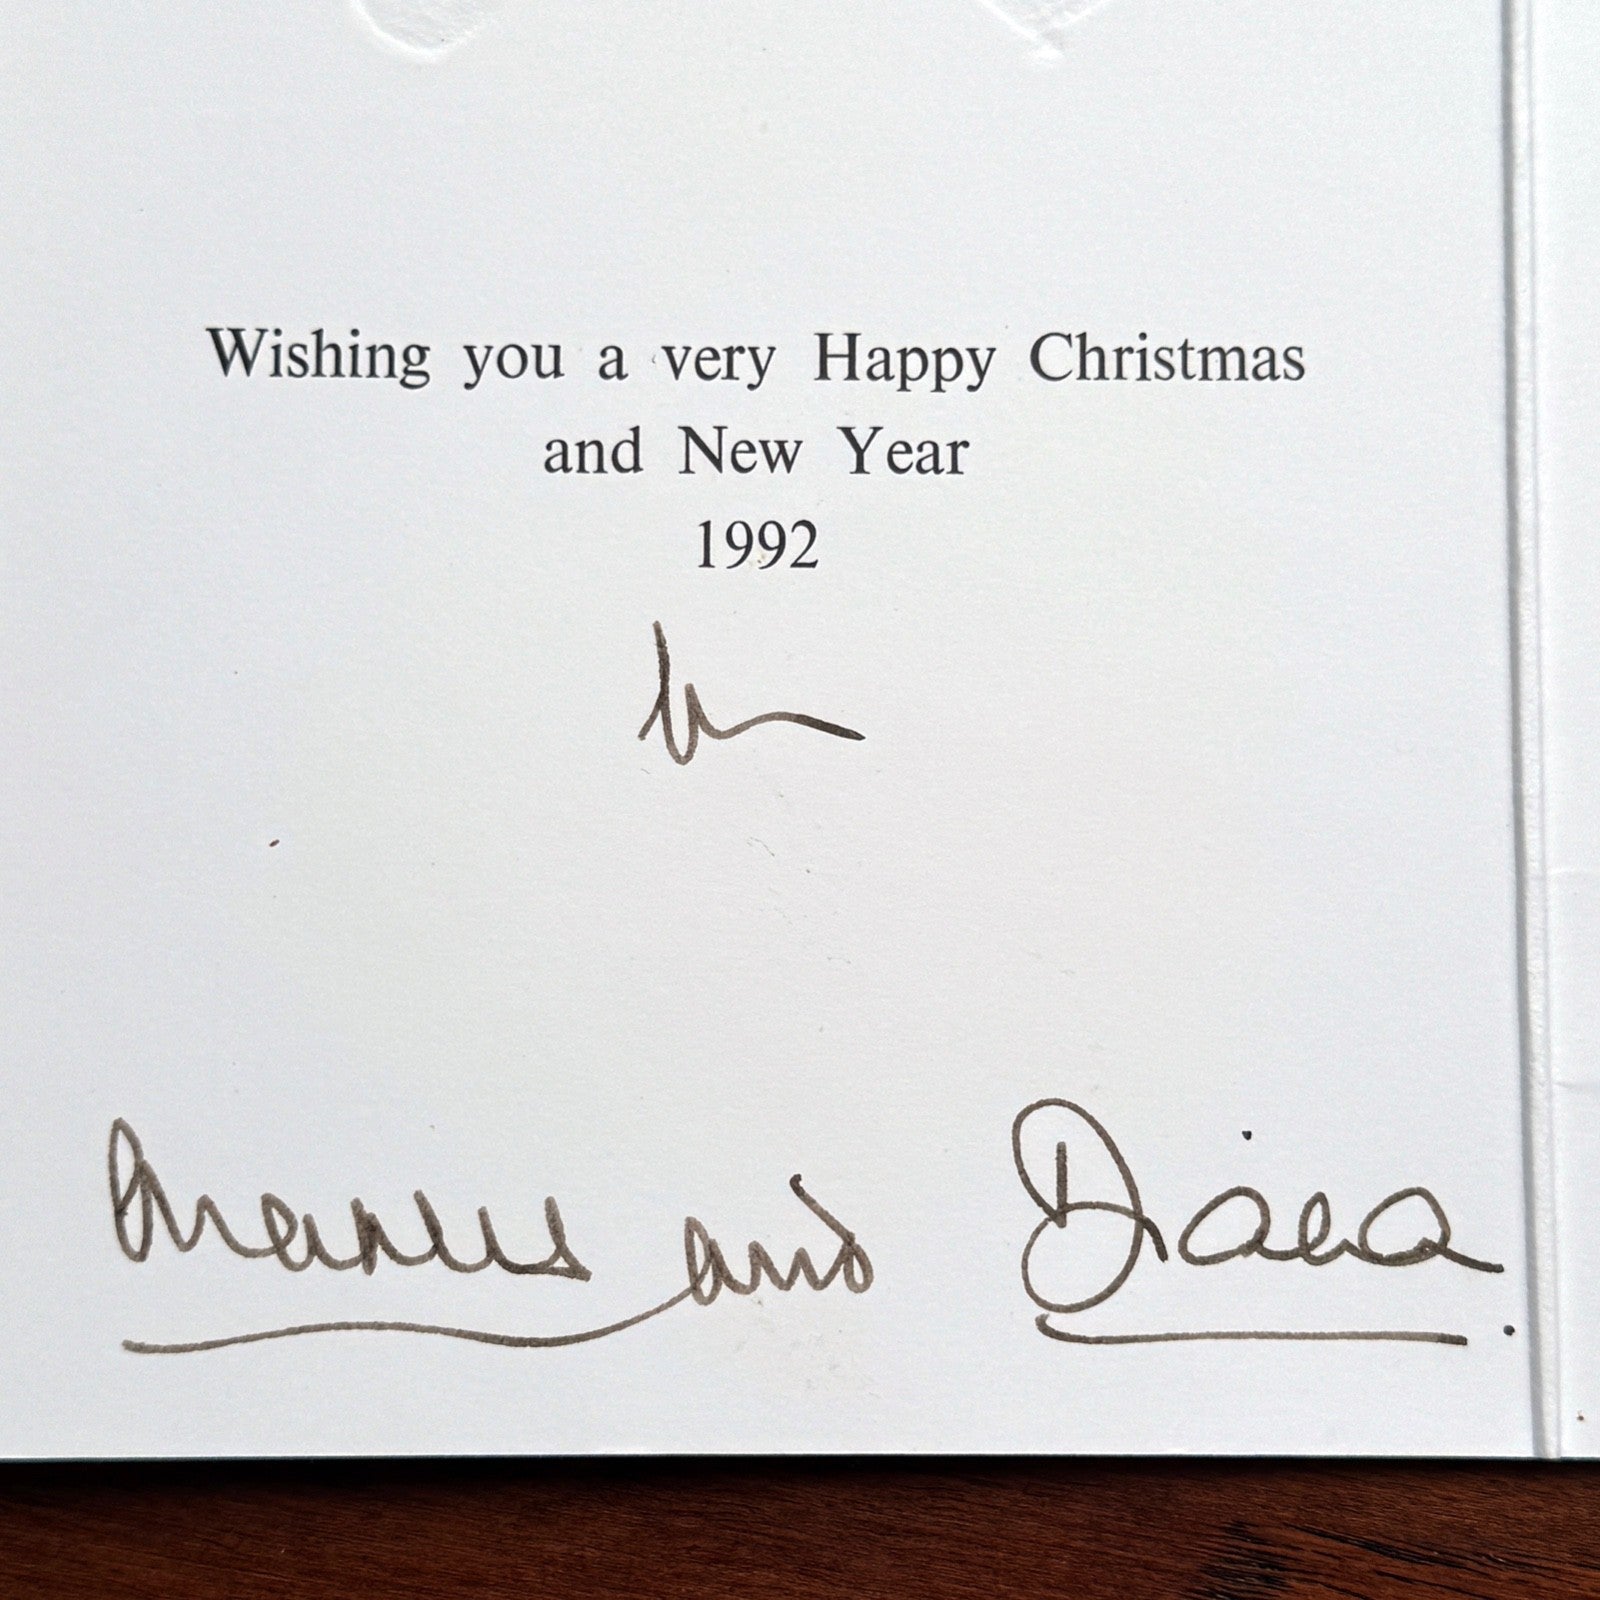 Wishing you a very Happy Christmas
and New Year
1992
from
Charles and Diana.